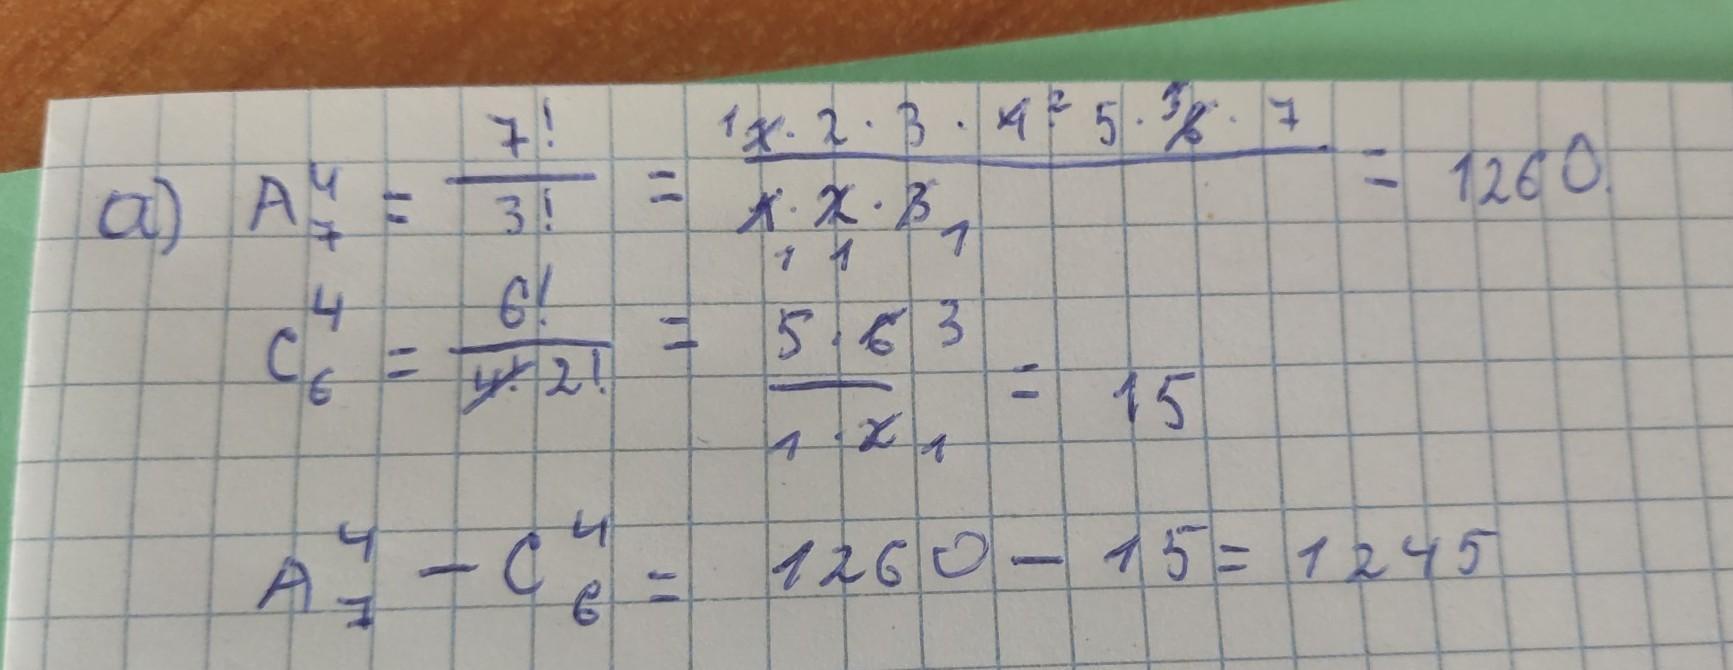 a) A₇⁴ = 7!/3! = ¹1̶ · 2 · 3 · 4̶² 5 · ³6̶ · 7 / 1̶ · 2̶ · 3̶ ₁ ₁ ₁ = 1260
C₆⁴ = 6!/4̶!̶ 2! = 5 · 6̶ 3 / 1 · 2̶ ₁ = 15
A₇⁴ – C₆⁴ = 1260 – 15 = 1245